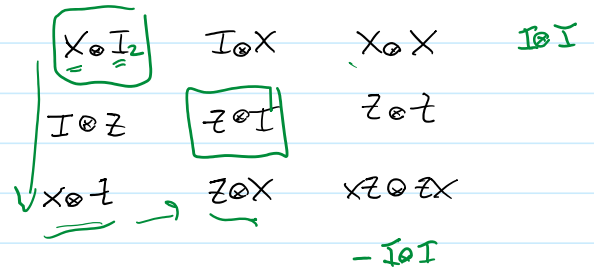 X⊗I₂ I⊗X X⊗X I⊗I
I⊗Z Z⊗I Z⊗Z
X⊗Z → Z⊗X XZ⊗ZX
-I⊗I